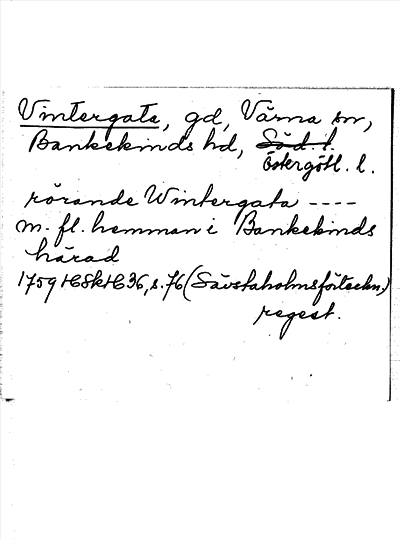 Vintergata, gd, Vårna sn,
Bankekinds hd, Söd. l.
Östergötl. l.
rörande Wintergata ----
m. fl. hemman i Bankekinds
härad
1759 HSkH 36, s. 76 (Sävstaholmsförteckn.)
regest.